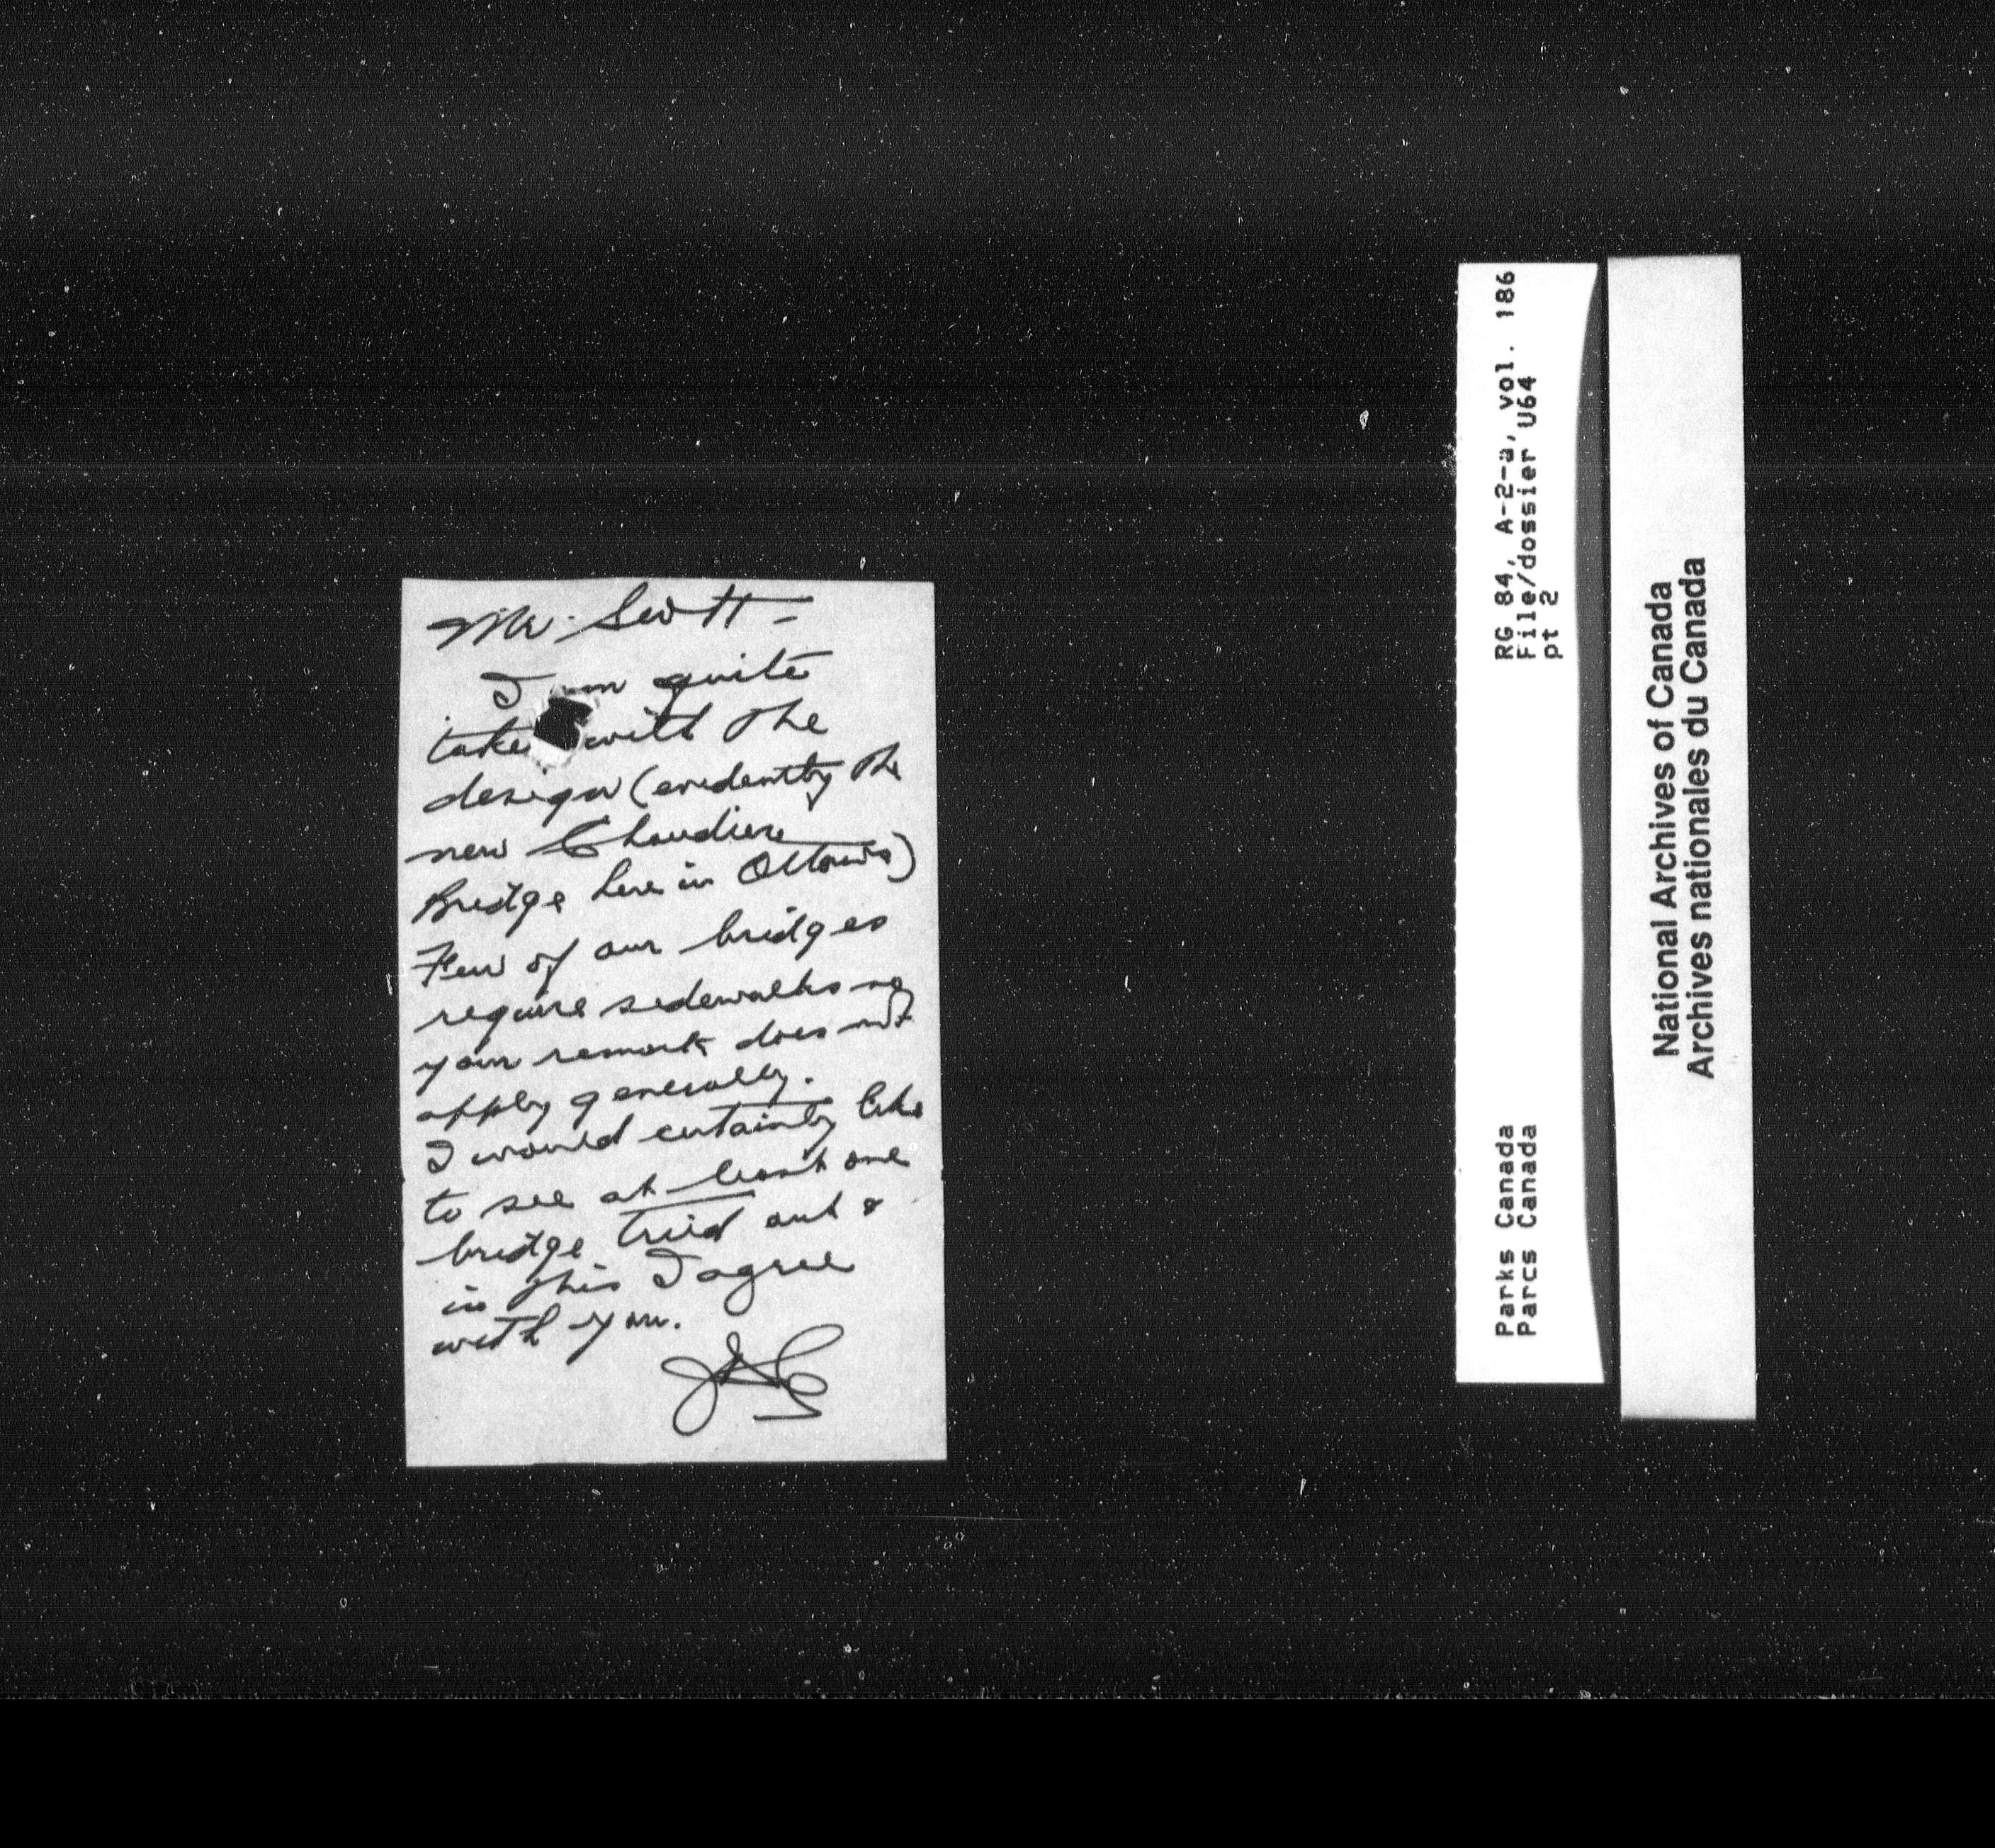 Mr. Scott -
I am quite
taken with the
design (evidently the
new Chaudiere
Bridge here in Ottawa)
Few of our bridges
require sidewalks so
your remark does not
apply generally.
I would certainly like
to see at least one
bridge tried out &
in this I agree
with you.
RG 84, A-2-a, vol. 186
File/dossier U64
pt 2
Parks Canada
Parcs Canada
National Archives of Canada
Archives nationales du Canada